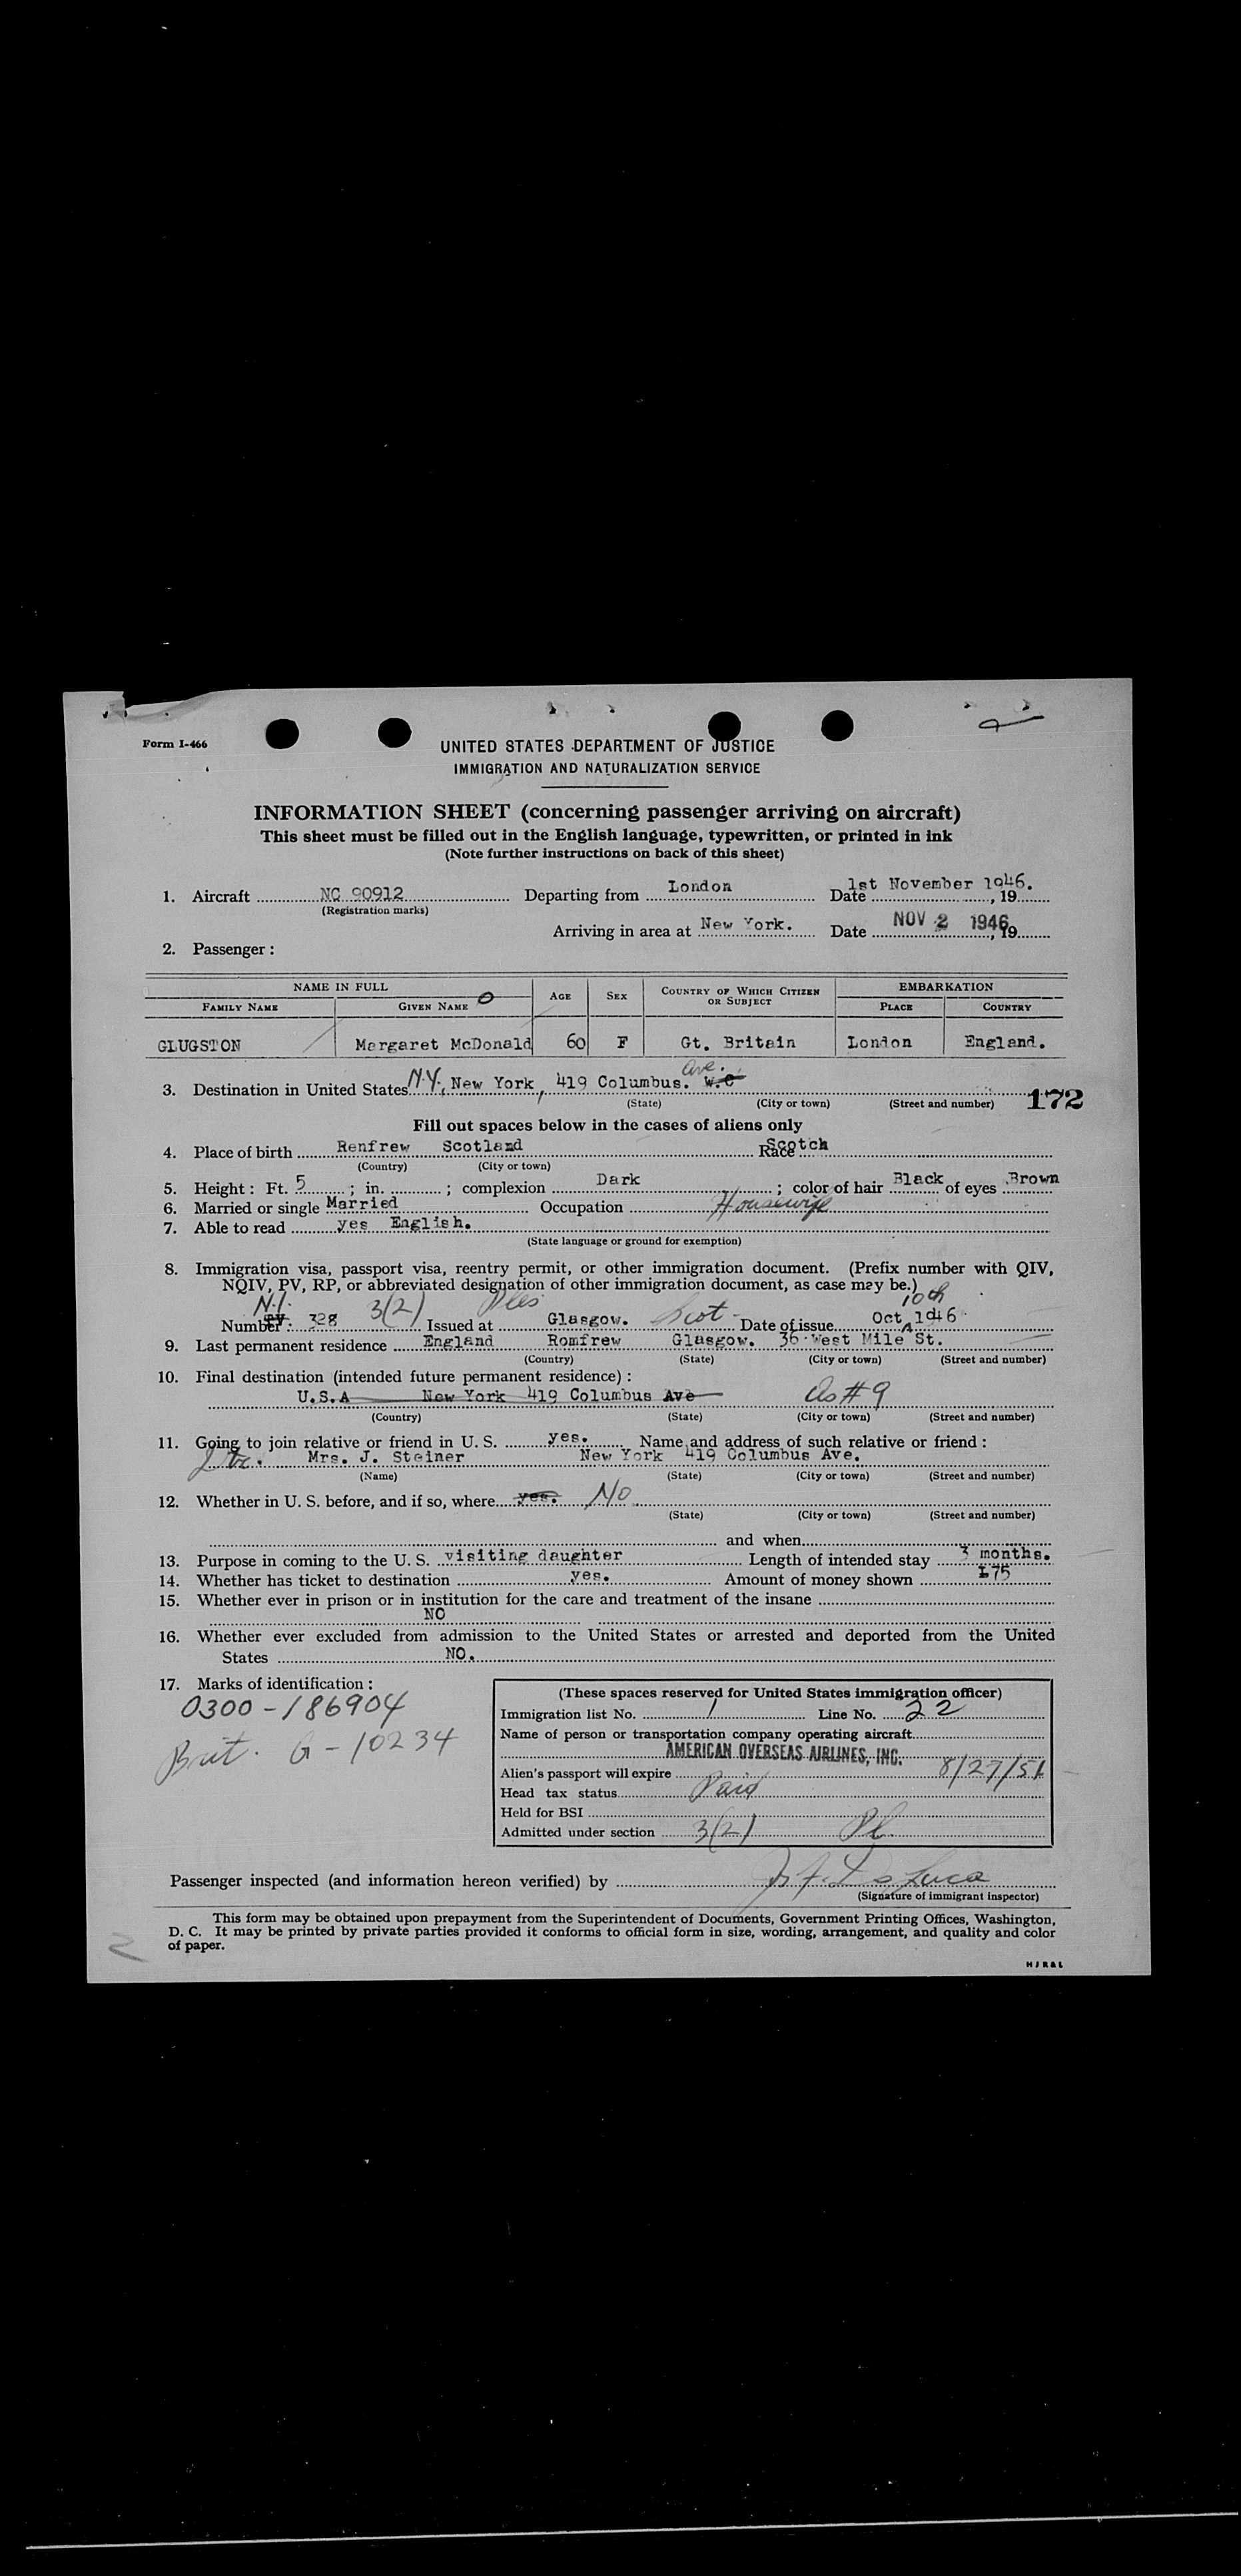 Form I-466
UNITED STATES DEPARTMENT OF JUSTICE
IMMIGRATION AND NATURALIZATION SERVICE
INFORMATION SHEET (concerning passenger arriving on aircraft)
This sheet must be filled out in the English language, typewritten, or printed in ink
(Note further instructions on back of this sheet)
1. Aircraft NC 90912 Departing from London Date 1st November 1946. , 19
(Registration marks)
Arriving in area at New York. Date NOV 2 1946 , 19
2. Passenger :
NAME IN FULL AGE SEX COUNTRY OF WHICH CITIZEN OR SUBJECT EMBARKATION
FAMILY NAME GIVEN NAME PLACE COUNTRY
GLUGSTON Margaret McDonald 60 F Gt. Britain London England.
3. Destination in United States N.Y. New York, 419 Columbus. W.C Ave.
(State) (City or town) (Street and number) 172
Fill out spaces below in the cases of aliens only
4. Place of birth Renfrew Scotland Race Scotch
(Country) (City or town)
5. Height : Ft. 5 ; in. ; complexion Dark ; color of hair Black of eyes Brown
6. Married or single Married Occupation Housewife
7. Able to read yes English.
(State language or ground for exemption)
8. Immigration visa, passport visa, reentry permit, or other immigration document. (Prefix number with QIV,
NQIV, PV, RP, or abbreviated designation of other immigration document, as case may be.)
N.I. 3(2) 10th
Number PV. 328 Issued at Glasgow. Scot Date of issue Oct 1946
9. Last permanent residence England Romfrew Glasgow. 36 West Mile St.
(Country) (State) (City or town) (Street and number)
10. Final destination (intended future permanent residence) :
U.S.A New York 419 Columbus Ave As #9
(Country) (State) (City or town) (Street and number)
11. Going to join relative or friend in U. S. yes. Name and address of such relative or friend :
Mrs. J. Steiner New York 419 Columbus Ave.
(Name) (State) (City or town) (Street and number)
12. Whether in U. S. before, and if so, where yes. No
(State) (City or town) (Street and number)
and when
13. Purpose in coming to the U. S. visiting daughter Length of intended stay 3 months.
14. Whether has ticket to destination yes. Amount of money shown £75
15. Whether ever in prison or in institution for the care and treatment of the insane
NO
16. Whether ever excluded from admission to the United States or arrested and deported from the United
States NO.
17. Marks of identification :
0300-186904
Brit. G-10234
(These spaces reserved for United States immigration officer)
Immigration list No. 1 Line No. 22
Name of person or transportation company operating aircraft
AMERICAN OVERSEAS AIRLINES, INC.
Alien's passport will expire 8/27/51
Head tax status Paid
Held for BSI
Admitted under section 3(2)
Passenger inspected (and information hereon verified) by
(Signature of immigrant inspector)
This form may be obtained upon prepayment from the Superintendent of Documents, Government Printing Offices, Washington,
D. C. It may be printed by private parties provided it conforms to official form in size, wording, arrangement, and quality and color
of paper.
2